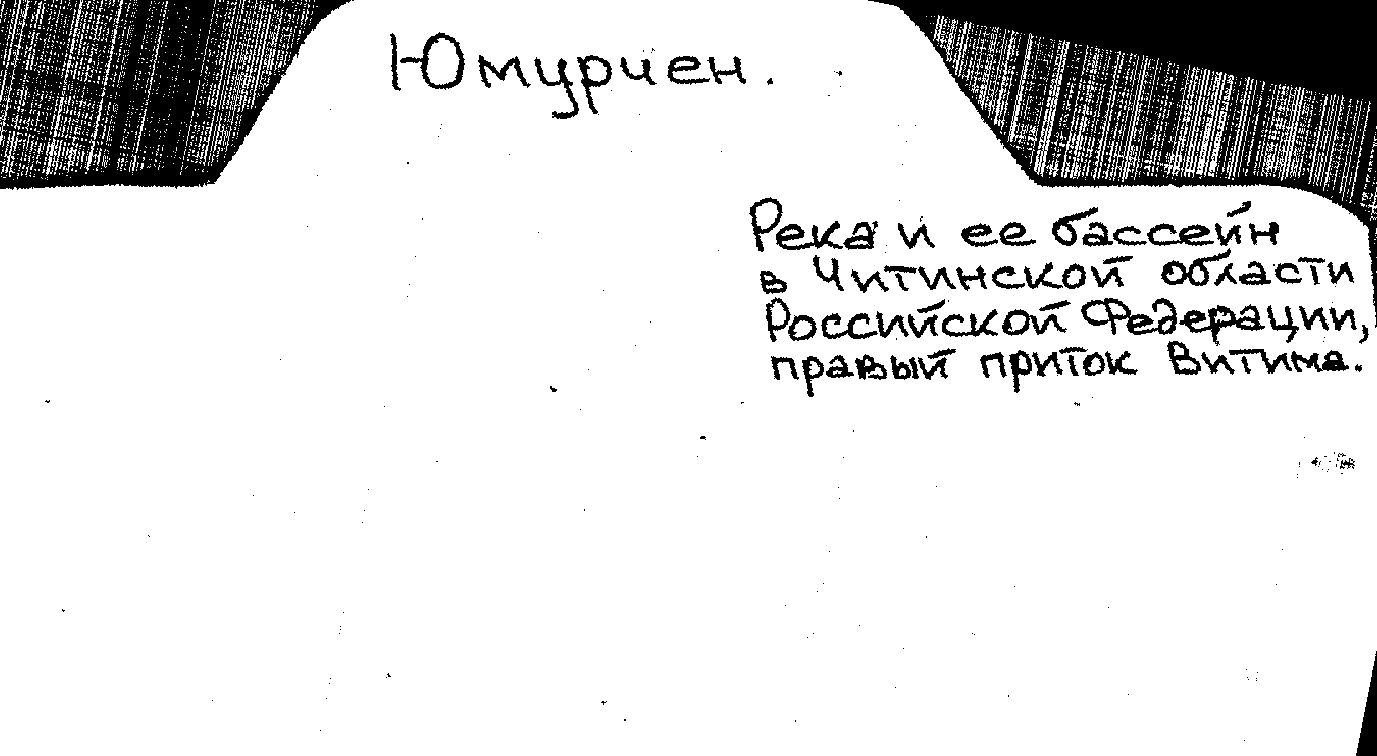 Юмурчен.
Река и ее бассейн
в Читинской области
Российской Федерации,
правый приток Витима.